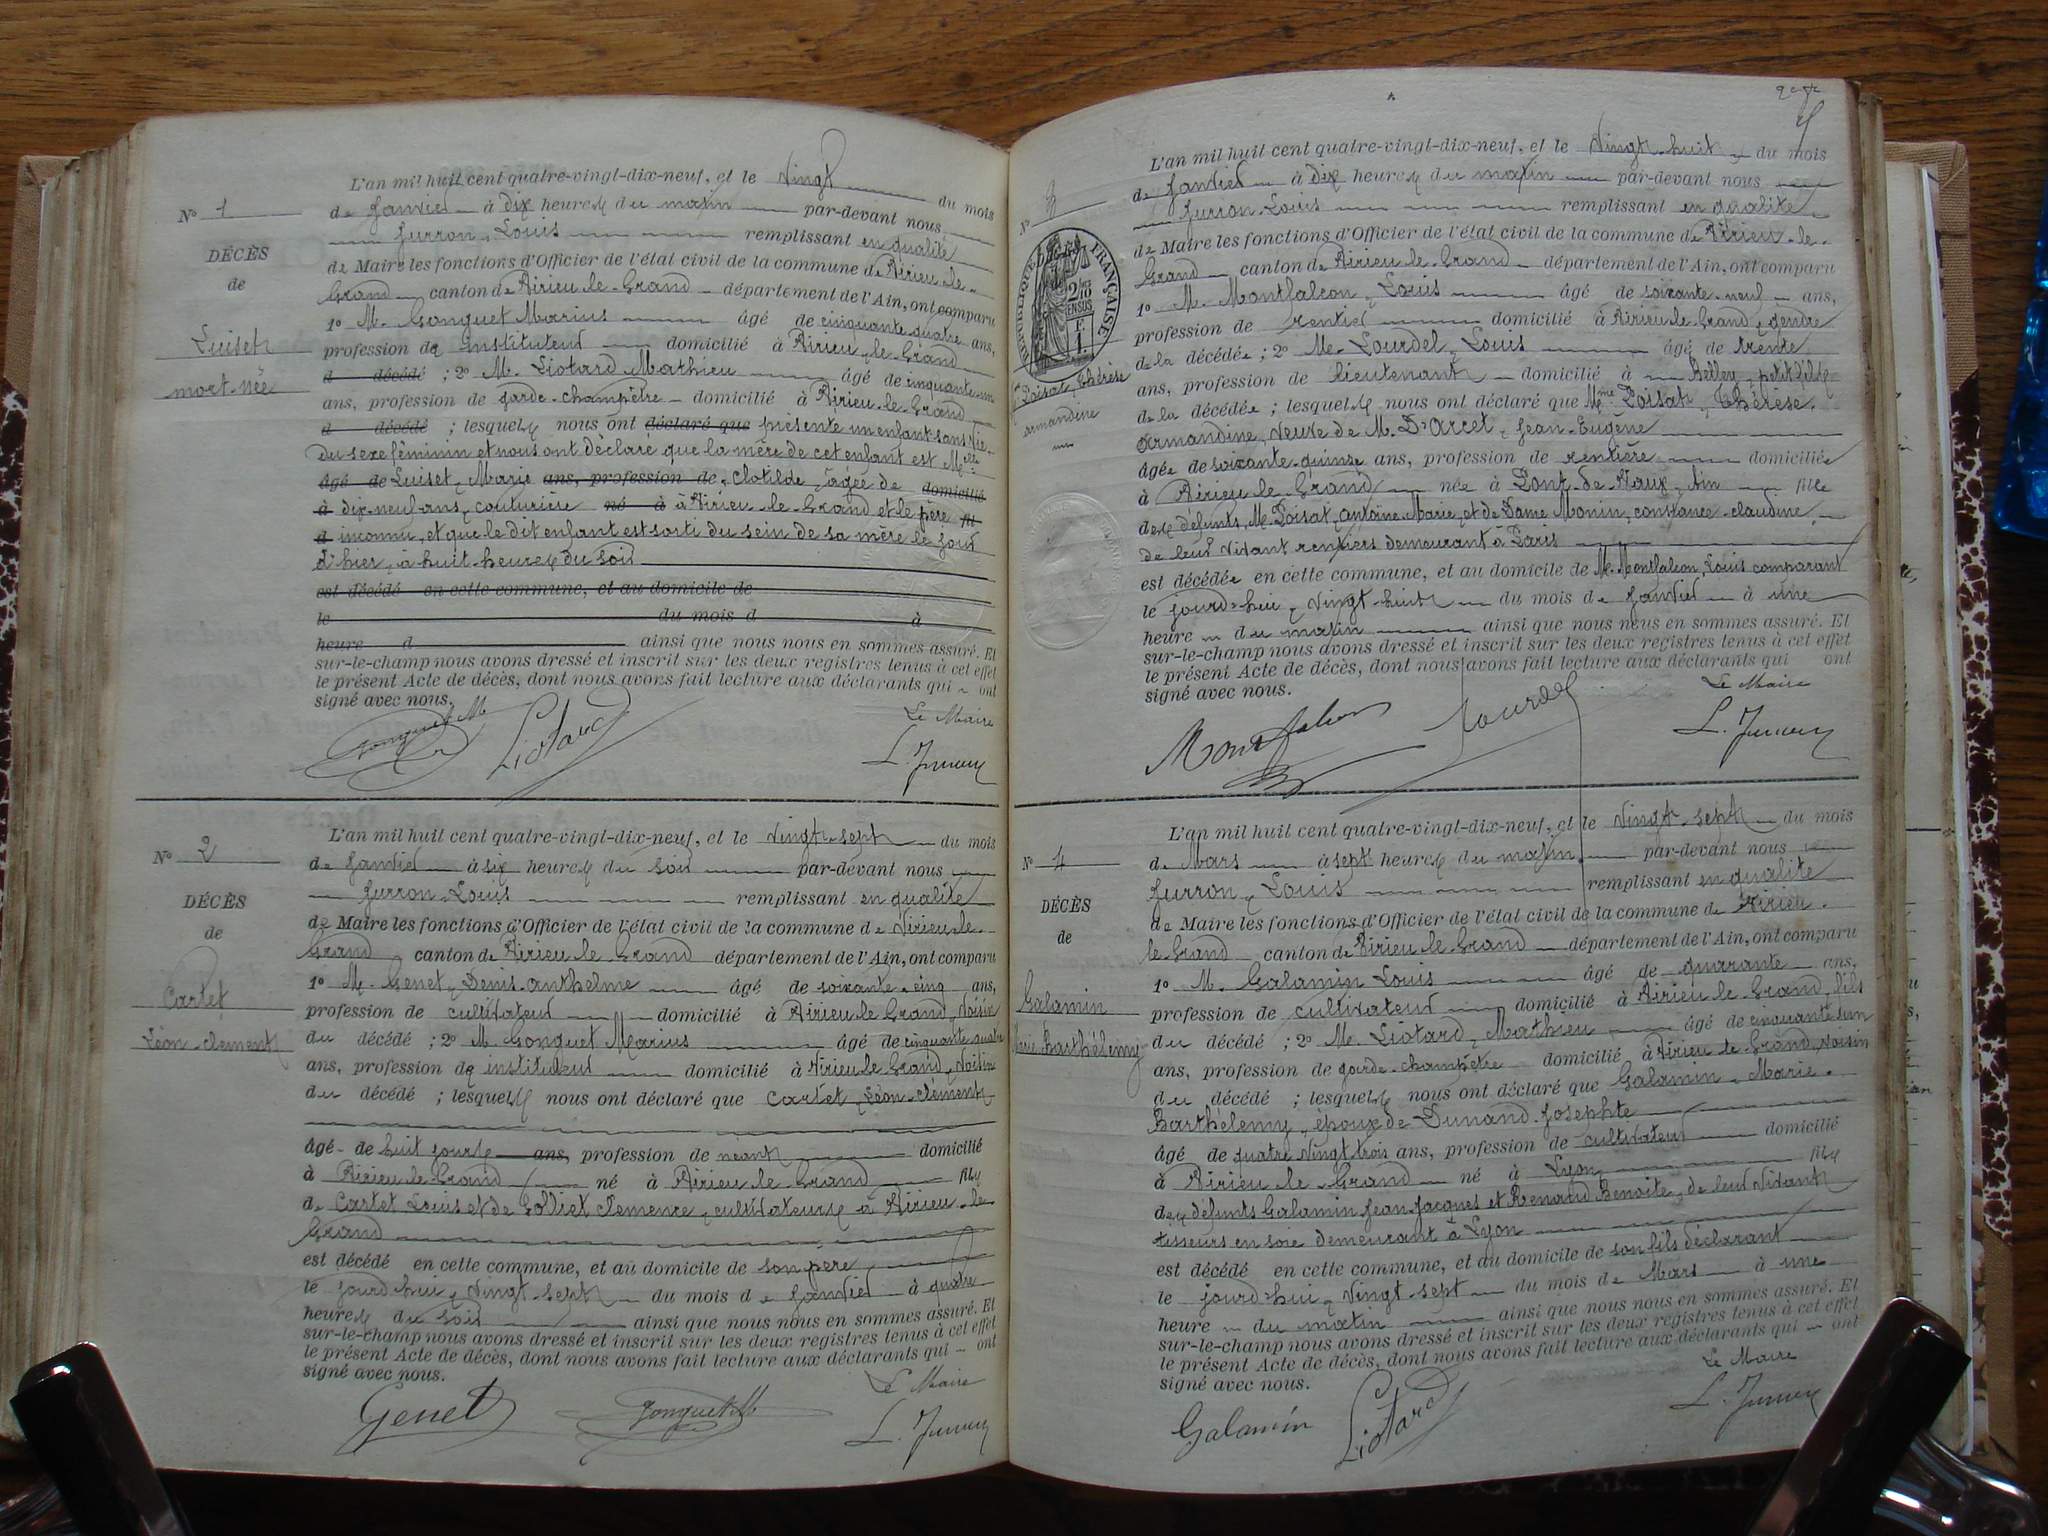 L'an mil huit cent quatre-vingt-dix-neuf, et le Vingt du mois
N° 1
de Janvier à dix heures du matin par-devant nous
Jurron, Louis remplissant en qualité
DÉCÈS
de Maire les fonctions d'Officier de l'état civil de la commune de Virieu-le-
de
Grand canton de Virieu-le-Grand département de l'Ain, ont comparu
1° M. Gonguet Marius âgé de cinquante-quatre ans,
Luiset
profession de instituteur domicilié à Virieu-le-Grand
mort-née
d décédé ; 2° M. Liotard Mathieu âgé de cinquante-un
ans, profession de garde-champêtre domicilié à Virieu-le-Grand
d décédé ; lesquels nous ont déclaré que présenté un enfant sans vie
du sexe féminin et nous ont déclaré que la mère de cet enfant est Melle
âgé de Luiset, Marie ans, profession de, Clotilde, âgée de domicilié
à dix-neuf ans, couturière né à à Virieu-le-Grand et le père fil
d inconnu, et que le dit enfant est sorti du sein de sa mère le jour
d'hier, à huit heures du soir
est décédé en cette commune, et au domicile de
le du mois d à
heure d ainsi que nous nous en sommes assuré. Et
sur-le-champ nous avons dressé et inscrit sur les deux registres tenus à cet effet
le présent Acte de décès, dont nous avons fait lecture aux déclarants qui ont
signé avec nous.
Le Maire
Gonguet M Liotard L. Jurron
L'an mil huit cent quatre-vingt-dix-neuf, et le Vingt-sept du mois
N° 2
de Janvier à six heures du soir par-devant nous
Jurron, Louis remplissant en qualité
DÉCÈS
de Maire les fonctions d'Officier de l'état civil de la commune de Virieu-le-
de
Grand canton de Virieu-le-Grand département de l'Ain, ont comparu
1° M. Genet, Denis-anthelme âgé de soixante-cinq ans,
Cartet
profession de cultivateur domicilié à Virieu-le-Grand, voisin
Léon-clément
du décédé ; 2° M. Gonguet Marius âgé de cinquante-quatre
ans, profession de instituteur domicilié à Virieu-le-Grand, voisin
du décédé ; lesquels nous ont déclaré que Cartet, Léon-clément
âgé de huit jours ans, profession de néant domicilié
à Virieu-le-Grand né à Virieu-le-Grand fils
de Cartet Louis et de Golliet Clémence, cultivateurs à Virieu-le
Grand
est décédé en cette commune, et au domicile de son père
le jourd'hui, vingt-sept du mois de Janvier à quatre
heures du soir ainsi que nous nous en sommes assuré. Et
sur-le-champ nous avons dressé et inscrit sur les deux registres tenus à cet effet
le présent Acte de décès, dont nous avons fait lecture aux déclarants qui ont
signé avec nous.
Le Maire
Genet Gonguet M L. Jurron
L'an mil huit cent quatre-vingt-dix-neuf, et le Vingt-huit du mois
N° 3
de Janvier à dix heures du matin par-devant nous
Jurron Louis remplissant en qualité
de Maire les fonctions d'Officier de l'état civil de la commune de Virieu-le-
Grand canton de Virieu-le-Grand département de l'Ain, ont comparu
RÉPUBLIQUE FRANÇAISE
2/10 EN SUS
1° M. Montfalcon, Louis âgé de soixante-neuf ans,
profession de rentier domicilié à Virieu-le-Grand, gendre
de la décédée ; 2° M. Lourdel, Louis âgé de trente
Poisat, Thérèse
ans, profession de lieutenant domicilié à Belley, petit-fils
armandine
de la décédée ; lesquels nous ont déclaré que Mme Poisat, Thérèse
armandine, veuve de M. D'arcet, Jean-Eugène
âgée de soixante-quinze ans, profession de rentière domiciliée
à Virieu-le-Grand née à Pont-de-Vaux, Ain fille
des défunts, M. Poisat, antoine-Marie, et de Dame Monin, constance-claudine,
de leur vivant rentiers demeurant à Paris
est décédée en cette commune, et au domicile de M. Montfalcon, Louis comparant
le jourd'hui, vingt-huit du mois de Janvier à une
heure du matin ainsi que nous nous en sommes assuré. Et
sur-le-champ nous avons dressé et inscrit sur les deux registres tenus à cet effet
le présent Acte de décès, dont nous avons fait lecture aux déclarants qui ont
signé avec nous.
Le Maire
Montfalcon Lourdel L. Jurron
L'an mil huit cent quatre-vingt-dix-neuf, et le Vingt-sept du mois
N° 4
de Mars à sept heures du matin par-devant nous
Jurron, Louis remplissant en qualité
DÉCÈS
de Maire les fonctions d'Officier de l'état civil de la commune de Virieu-
de
le-Grand canton de Virieu-le-Grand département de l'Ain, ont comparu
1° M. Galamin Louis âgé de quarante ans,
Galamin
profession de cultivateur domicilié à Virieu-le-Grand, fils
Marie Barthélemy
du décédé ; 2° M. Liotard, Mathieu âgé de cinquante-un
ans, profession de garde-champêtre domicilié à Virieu-le-Grand, voisin
du décédé ; lesquels nous ont déclaré que Galamin, Marie-
Barthélemy, époux de Dunand Josephte
âgé de quatre-vingt-trois ans, profession de cultivateur domicilié
à Virieu-le-Grand né à Lyon fils
des défunts Galamin Jean-Jacques et Renaud Benoite, de leur vivant
tisseurs en soie demeurant à Lyon
est décédé en cette commune, et au domicile de son fils déclarant
le jourd'hui, vingt-sept du mois de Mars à une
heure du matin ainsi que nous nous en sommes assuré. Et
sur-le-champ nous avons dressé et inscrit sur les deux registres tenus à cet effet
le présent Acte de décès, dont nous avons fait lecture aux déclarants qui ont
signé avec nous.
Le Maire
Galamin Liotard L. Jurron